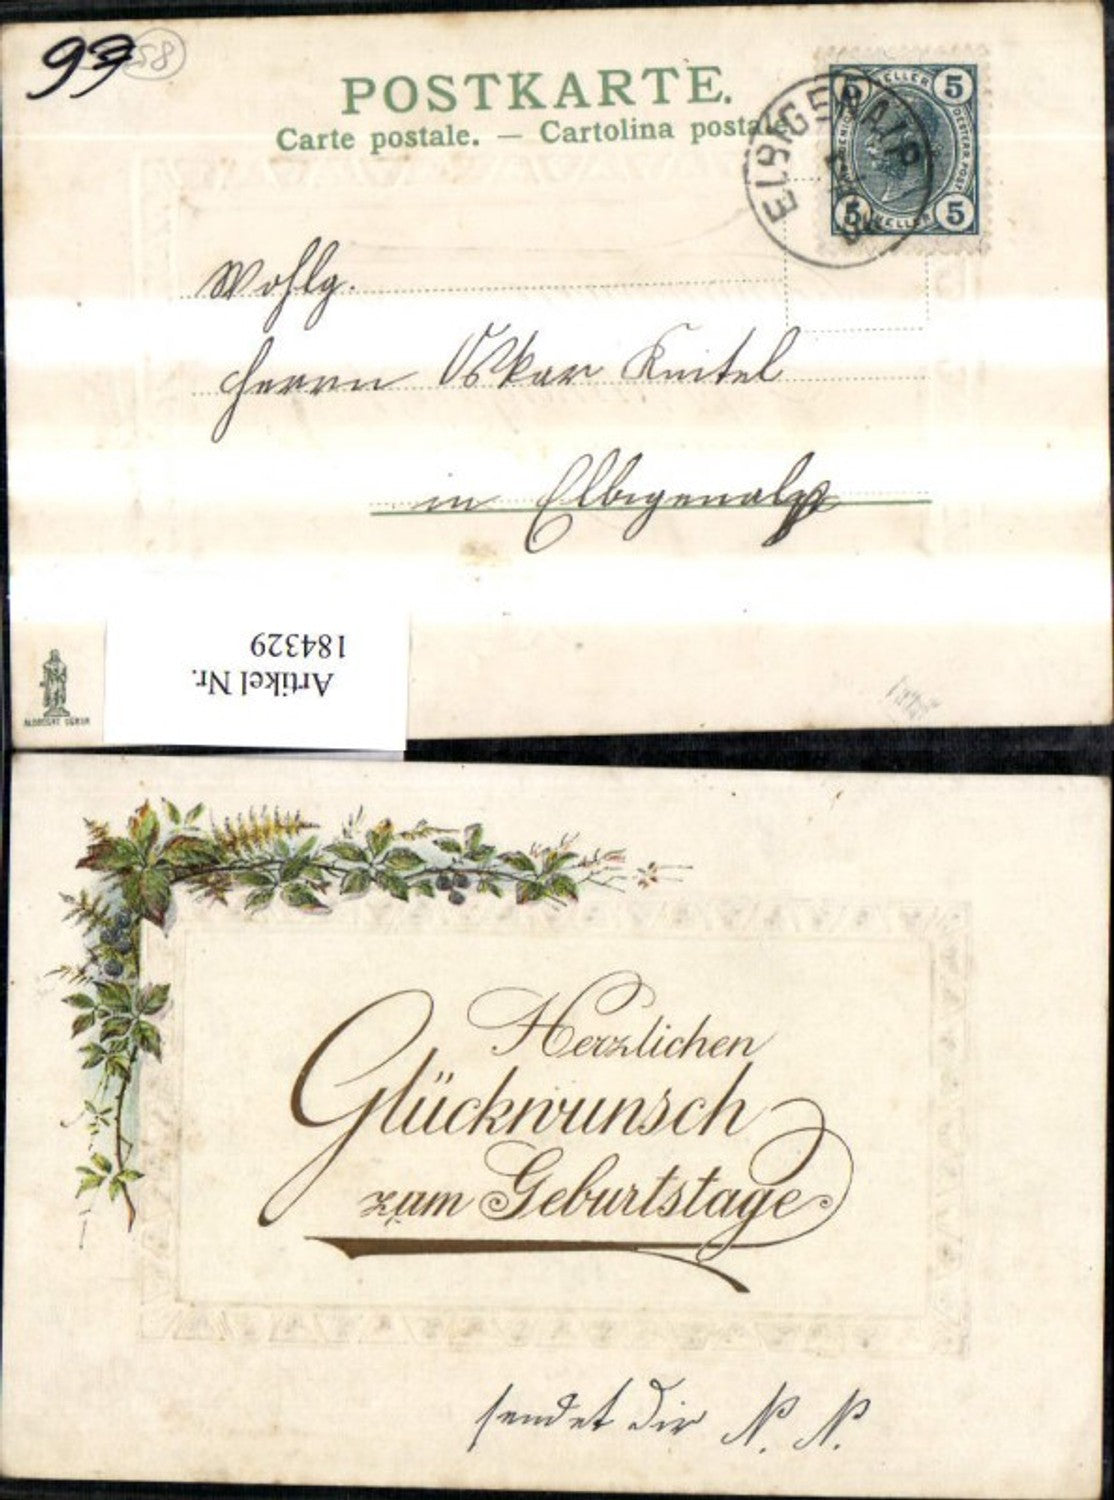 93
58
POSTKARTE.
Carte postale. — Cartolina postale.
ELBIGENALP
5 HELLER 5
5 HELLER 5
Wohlg.
Herrn Oskar Knitel
in Elbigenalp
Artikel Nr.
184329
ALBRECHT DÜRER
Herzlichen
Glückwunsch
zum Geburtstage
sendet dir N. N.